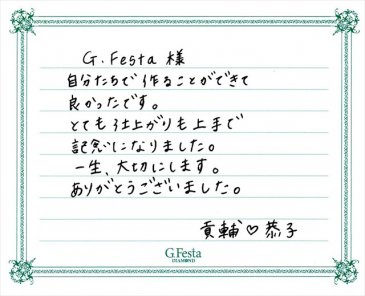 G.Festa 様
自分たちで作ることができて
良かったです。
とても仕上がりも上手で
記念になりました。
一生、大切にします。
ありがとうございました。
貢輔♡恭子
G.Festa
DIAMOND